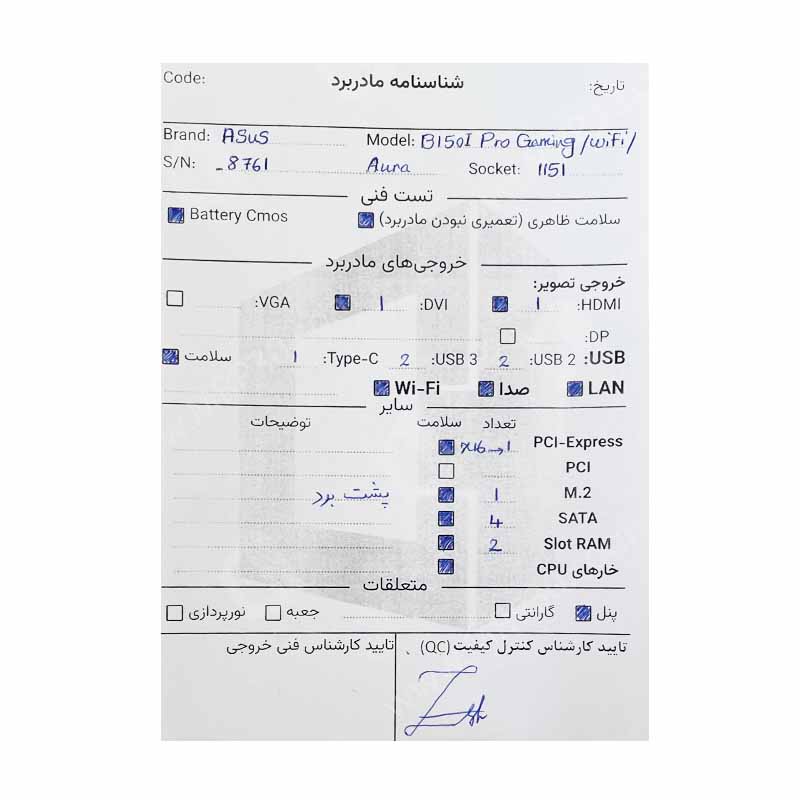 Code: شناسنامه مادربرد تاریخ:
Brand: ASUS Model: B150I Pro Gaming /WiFi/
S/N: _8761 Aura Socket: 1151
تست فنی
سلامت ظاهری (تعمیری نبودن مادربرد) Battery Cmos
خروجی‌های مادربرد
خروجی تصویر:
HDMI: 1 DVI: 1 VGA:
DP:
USB: USB 2: 2 USB 3: 2 Type-C: 1 سلامت
LAN صدا Wi-Fi
سایر
تعداد سلامت توضیحات
PCI-Express x16→1
PCI
M.2 1 پشت برد
SATA 4
Slot RAM 2
خارهای CPU
متعلقات
پنل گارانتی جعبه نورپردازی
تایید کارشناس کنترل کیفیت (QC) تایید کارشناس فنی خروجی